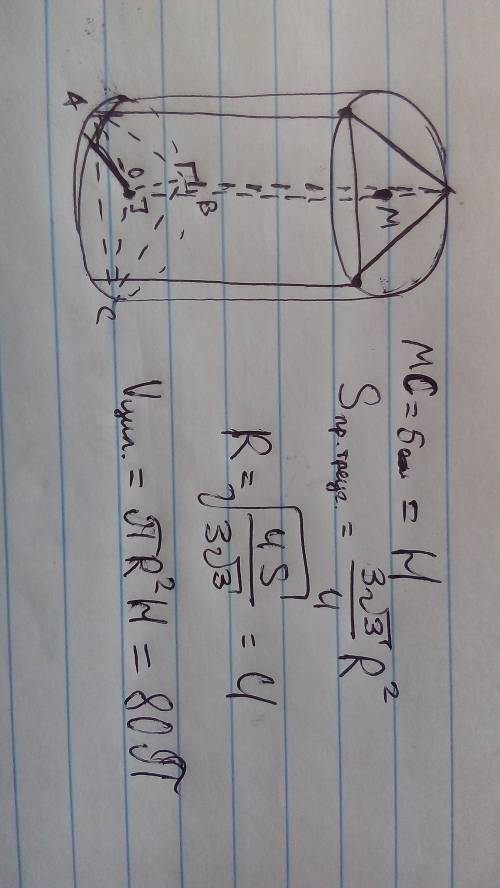 M
B
O
A
C
MO = 5 см = H
S пр. треуг. = 3√3/4 R²
R = √(4S/3√3) = 4
V цил. = πR²H = 80π